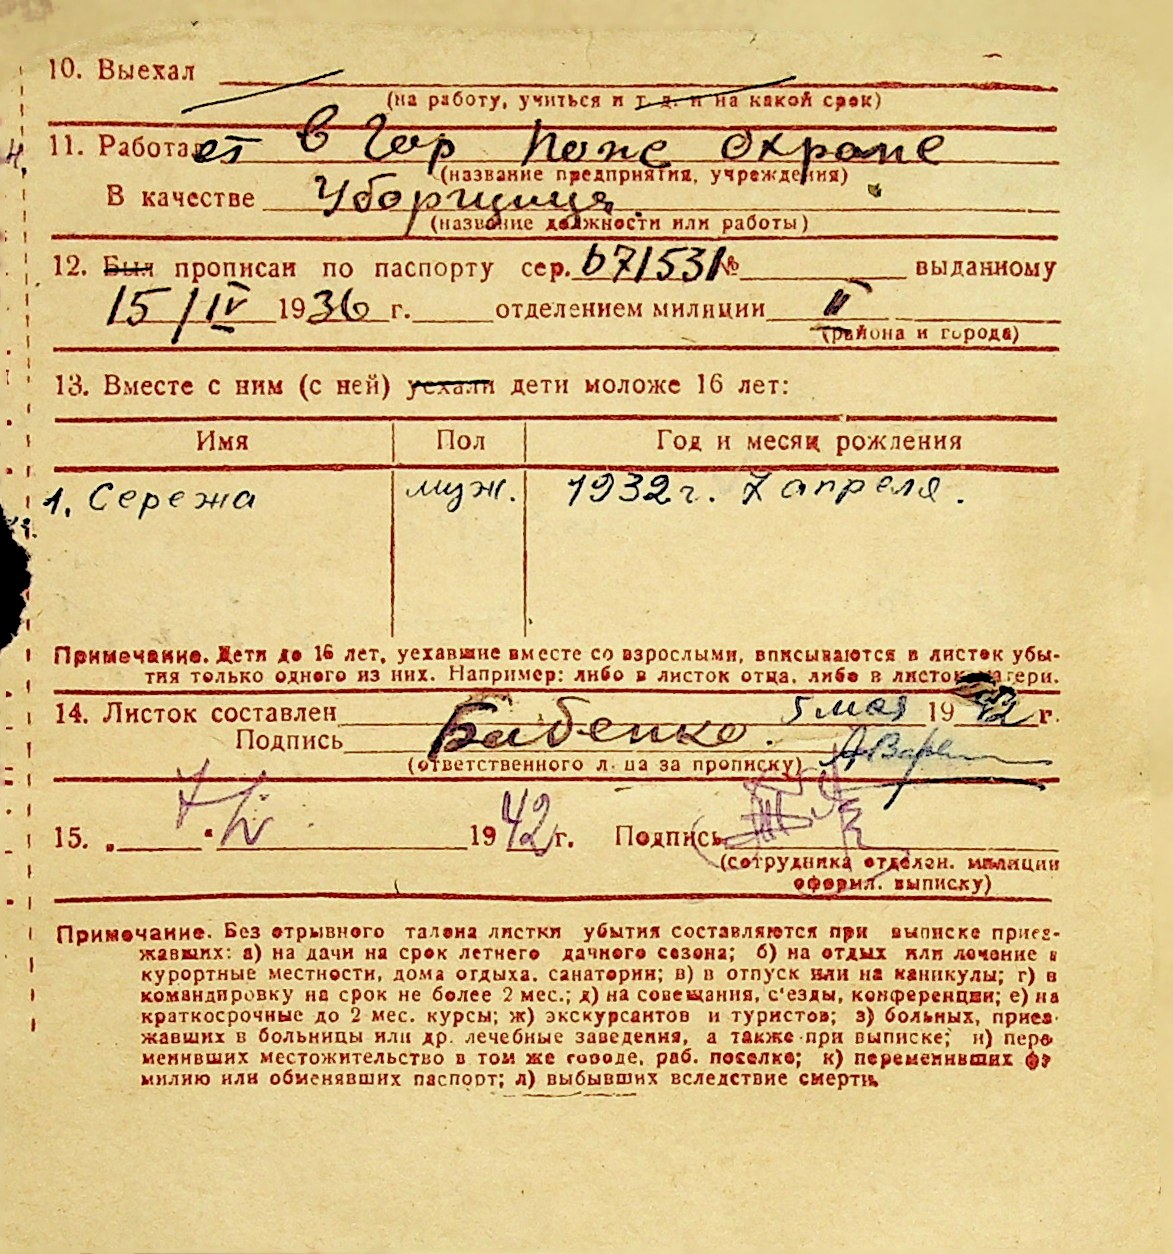 10. Выехал
(на работу, учиться и т. д. и на какой срок)
11. Работает в Гор Пож Охране
(название предприятия, учреждения)
В качестве Уборщица.
(название должности или работы)
12. Был прописан по паспорту сер. 671531 № выданному
15/IV 1936 г. отделением милиции II
(района и города)
13. Вместе с ним (с ней) уехали дети моложе 16 лет:
Имя Пол Год и месяц рождения
1. Сережа муж. 1932 г. 7 апреля.
Примечание. Дети до 16 лет, уехавшие вместе со взрослыми, вписываются в листок убы-
тия только одного из них. Например: либо в листок отца, либо в листок матери.
14. Листок составлен 5 мая 1942 г.
Подпись Бабенко.
(ответственного лица за прописку)
15. 1942 г. Подпись
(сотрудника отделен. милиции
оформл. выписку)
Примечание. Без отрывного талона листки убытия составляются при выписке приез-
жавших: а) на дачи на срок летнего дачного сезона; б) на отдых или лечение в
курортные местности, дома отдыха. санатории; в) в отпуск или на каникулы; г) в
командировку на срок не более 2 мес.; д) на совещания, с'езды, конференции; е) на
краткосрочные до 2 мес. курсы; ж) экскурсантов и туристов; з) больных, приез-
жавших в больницы или др. лечебные заведения, а также при выписке; и) пере
менивших местожительство в том же городе, раб. поселке; к) переменивших фа
милию или обменявших паспорт; л) выбывших вследствие смерти.